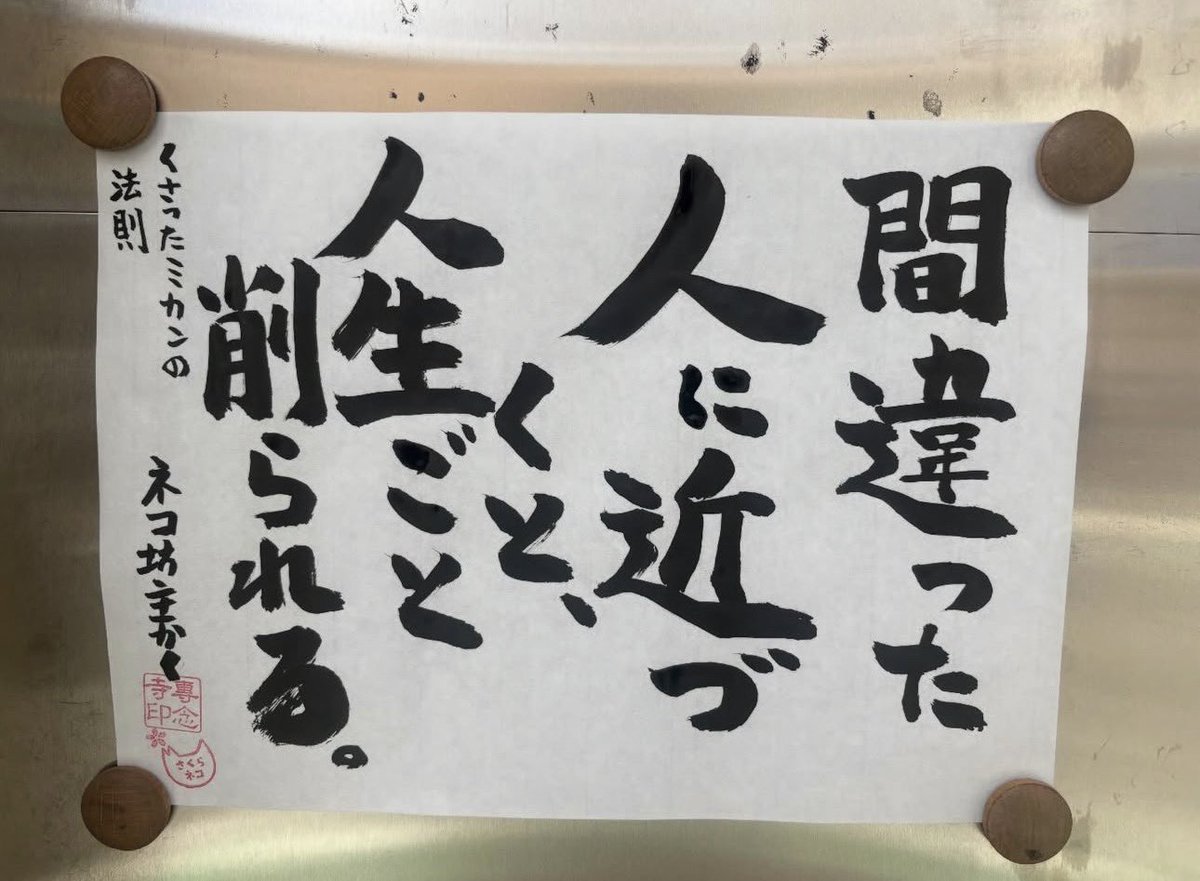 間違った
人に近づ
くと、
人生ごと
削られる。
くさったミカンの
法則
ネコ坊主かく
専念
寺印
さくら
ネコ